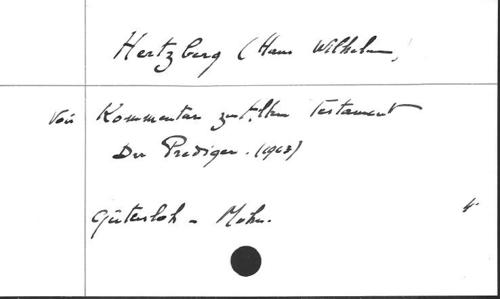 Hertzberg (Hans Wilhelm)
Voir Kommentar zum Alten Testament
Der Prediger. (1963)
Gütersloh - Mohn.